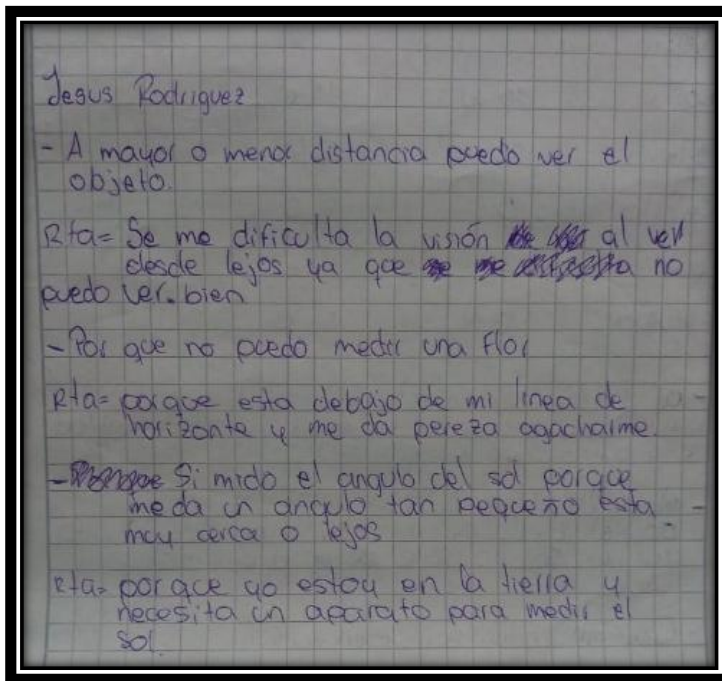 Jesus Rodriguez
- A mayor o menor distancia puedo ver el
objeto.
Rta= Se me dificulta la visión al ver
desde lejos ya que no
puedo ver. bien
- Por que no puedo medir una flor
Rta= porque esta debajo de mi linea de
horizonte y me da pereza agacharme
- Si mido el angulo del sol porque
me da un angulo tan pequeño esta
muy cerca o lejos
Rta= porque yo estoy en la tierra y
necesita un aparato para medir el
sol.